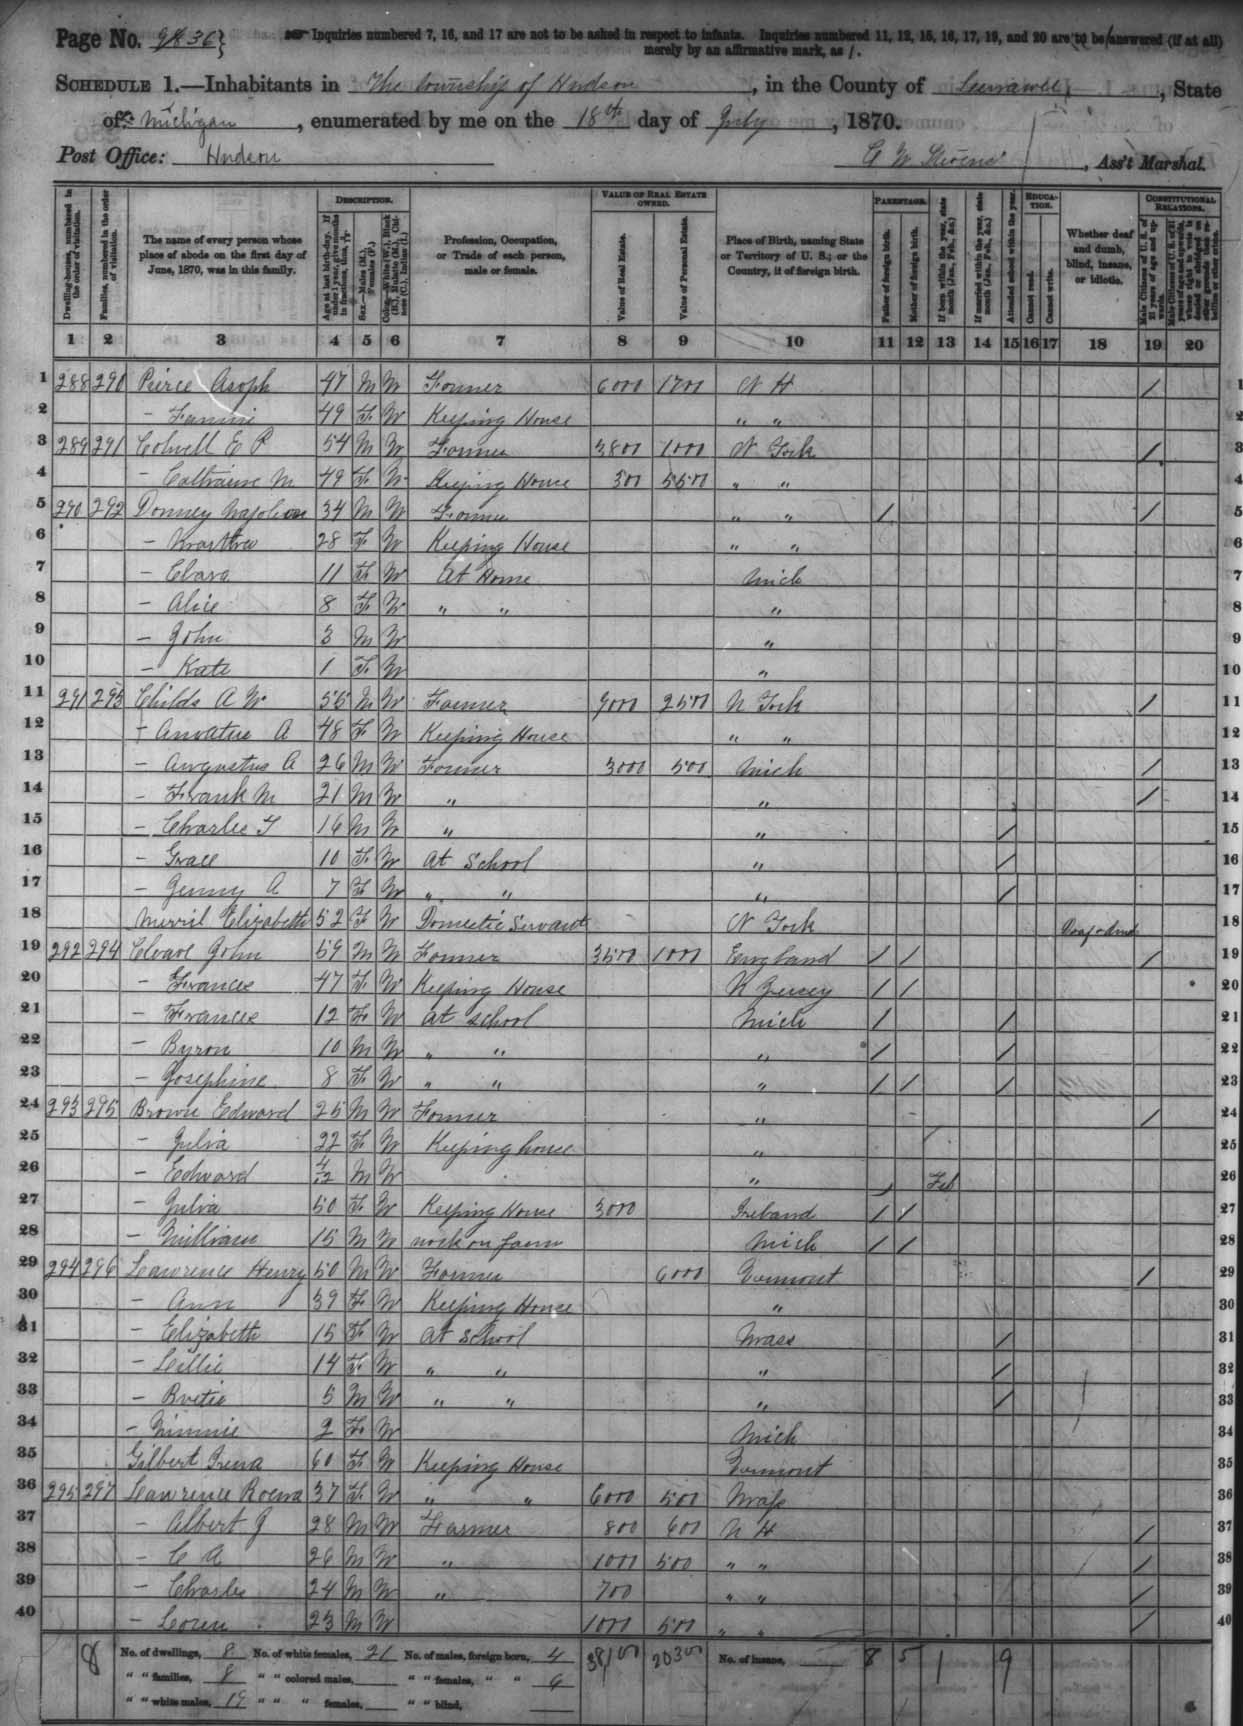 Page No. 36}
Inquiries numbered 7, 16, and 17 are not to be asked in respect to infants. Inquiries numbered 11, 12, 15, 16, 17, 19, and 20 are to be answered (if at all)
merely by an affirmative mark, as /.
SCHEDULE 1.—Inhabitants in The township of Hudson, in the County of Lenawee, State
of Michigan, enumerated by me on the 18th day of July, 1870.
Post Office: Hudson
C W Stevens, Ass't Marshal.
Dwelling-houses, numbered in the order of visitation.
Families, numbered in the order of visitation.
The name of every person whose place of abode on the first day of June, 1870, was in this family.
DESCRIPTION.
Age at last birth-day. If under 1 year, give months in fractions, thus, 3/12
Sex.—Males (M.), Females (F.)
Color.—White (W.), Black (B.), Mulatto (M.), Chinese (C.), Indian (I.)
Profession, Occupation, or Trade of each person, male or female.
VALUE OF REAL ESTATE OWNED.
Value of Real Estate.
Value of Personal Estate.
Place of Birth, naming State or Territory of U. S.; or the Country, if of foreign birth.
PARENTAGE.
Father of foreign birth.
Mother of foreign birth.
If born within the year, state month (Jan., Feb., &c.)
If married within the year, state month (Jan., Feb., &c.)
Attended school within the year.
EDUCATION.
Cannot read.
Cannot write.
Whether deaf and dumb, blind, insane, or idiotic.
CONSTITUTIONAL RELATIONS.
Male Citizens of U. S. of 21 years of age and upwards.
1 2 3 4 5 6 7 8 9 10 11 12 13 14 15 16 17 18 19 20
1 288 290 Peirce Asoph 47 M W Farmer 6000 1700 N H / 1
2 – Fannie 49 F W Keeping House " " 2
3 289 291 Colwell E P 54 M W Farmer 3800 1000 N York / 3
4 – Cathraine M 49 F W Keeping House 300 5500 " " 4
5 290 292 Donney Napoleon 34 M W Farmer " " / / 5
6 – Martha 28 F W Keeping House " " 6
7 – Clara 11 F W At Home Mich 7
8 – Alice 8 F W " " " 8
9 – John 3 M W " 9
10 – Kate 1 F W " 10
11 291 293 Childs A W 55 M W Farmer 9000 2500 N York / 11
12 – A 48 F W Keeping House " " 12
13 – Augustus A 26 M W Farmer 3000 500 Mich / 13
14 – Frank M 21 M W " " / 14
15 – Charles F 16 M W " " / 15
16 – Grace 10 F W At School " / 16
17 – Jenny A 7 F W " " " / 17
18 Merril Elizabeth 52 F W Domestic Servant N York Deaf & dumb 18
19 292 294 Cleave John 59 M W Farmer 3500 1000 England / / / 19
20 – Frances 47 F W Keeping House N Jersey / / 20
21 – Frances 12 F W At school Mich / / 21
22 – Byron 10 M W " " " / / 22
23 – Josephine 8 F W " " " / / / 23
24 293 295 Brown Edward 25 M W Farmer " / 24
25 – Julia 22 F W Keeping house " 25
26 – Edward 4/12 M W " / Feb 26
27 – Julia 50 F W Keeping House 3000 Ireland / / 27
28 – William 15 M W work on farm Mich / / 28
29 294 296 Lawrence Henry 50 M W Farmer 6000 Vermont / 29
30 – Ann 39 F W Keeping House " 30
31 – Elizabeth 15 F W At school Mass / 31
32 – Lillie 14 F W " " " / 32
33 – 5 M W " " " / 33
34 – Minnie 2 F W Mich 34
35 Gilbert Irena 60 F W Keeping House Vermont 35
36 295 297 Lawrence Roena 37 F W " " 6000 500 Mass 36
37 – Albert J 28 M W Farmer 800 600 N H / 37
38 – C A 26 M W " 1000 500 " " / 38
39 – Charles 24 M W " 700 " " / 39
40 – Loren 23 M W 1000 500 " " / 40
8 No. of dwellings, 8 No. of white females, 21 No. of males, foreign born, 4 38100 20300 No. of insane, 8 5 1 9
" " families, 8 " " colored males, " " females, " " 6
" " white males, 19 " " " females, " " blind,